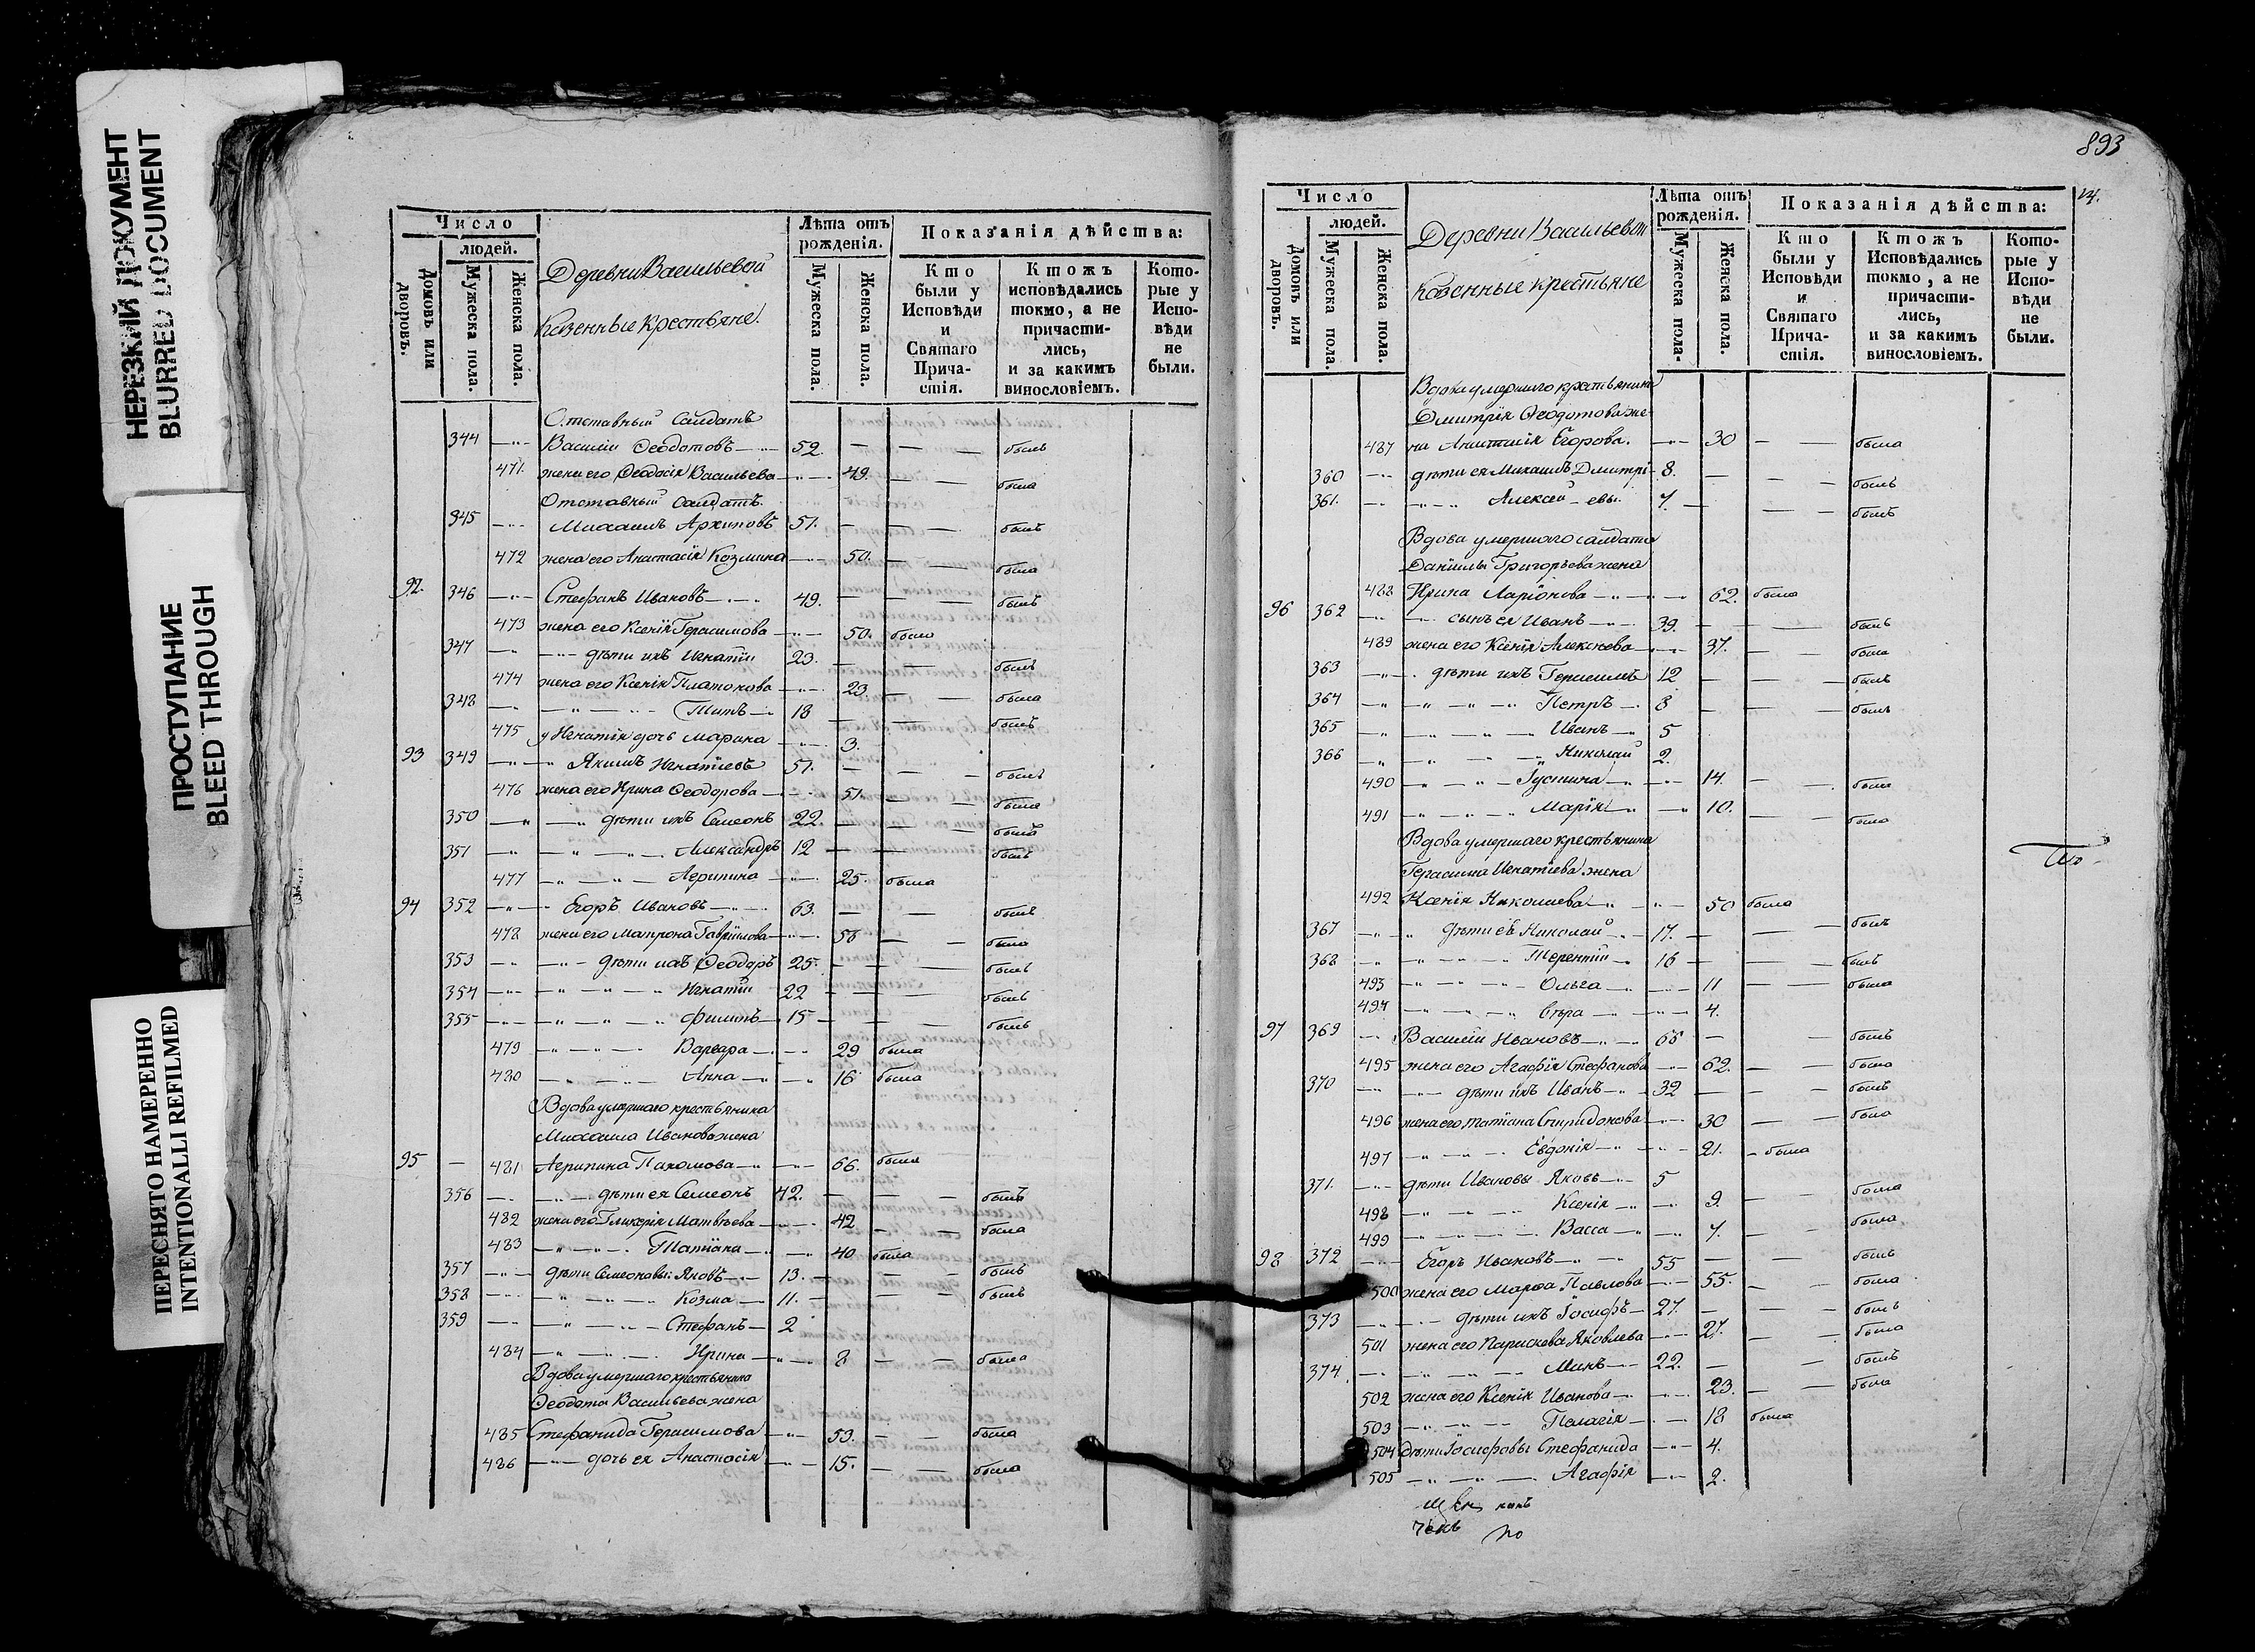 НЕРЕЗКИЙ ДОКУМЕНТ
BLURRED DOCUMENT
ПРОСТУПАНИЕ
BLEED THROUGH
ПЕРЕСНЯТО НАМЕРЕННО
INTENTIONALLI REFILMED
Число
людей.
Домовъ или дворовъ.
Мужеска пола.
Женска пола.
Деревни Васильевой
Казенные Крестьяне.
Лѣта отъ рожденія.
Мужеска пола.
Женска пола.
Показанія дѣйства:
Кто были у Исповѣди и Святаго Причастія.
Ктожъ исповѣдались токмо, а не причасти-лись, и за какимъ винословіемъ.
Кото-рые у Испо-вѣди не были.
Отставный Салдатъ
344 Василий Ѳеодотовъ 52. былъ
471. жена его Ѳеодосія Васильева 49. была
Отставный Салдатъ.
345 Михаилъ Архиповъ 51. былъ
472 жена его Анастасія Козмина 50. была
92. 346 Стефанъ Ивановъ 49. былъ
473 жена его Ксенія Герасимова 50. была
347 дѣти ихъ Игнатій 23. былъ
474 жена его Ксенія Платонова 23. была
348 Титъ 18 былъ
475 у Игнатія дочь Марина 3.
93 349 Якимъ Игнатіевъ 51. былъ
476 жена его Ирина Ѳеодорова 51 была
350 дѣти ихъ Семеонъ 22. былъ
351 Александръ 12 былъ
477 Агрипина 25. была
94 352 Егоръ Ивановъ 63. былъ
478 жена его Матрона Гавріилова 58 была
353 дѣти ихъ Ѳеодоръ 25. былъ
354 Игнатій 22 былъ
355 Филипъ 15 былъ
479 Варвара 29 была
480 Анна 16 была
Вдова умершаго крестьянина
Михаила Иванова жена
95 481 Агрипина Пахомова 66. была
356 дѣти ея Семеонъ 42. былъ
482 жена его Гликерія Матвѣева 42 была
483 Татіана 40 была
357 дѣти Семеоновы: Яковъ 13. былъ
358 Козма 11. былъ
359 Стефанъ 2
484 Ирина 8 была
Вдова умершаго крестьянина
Ѳеодота Васильева жена
485 Стефанида Герасимова 53. была
486 дочь ея Анастасія 15. была
893
Число
людей.
Домовъ или дворовъ.
Мужеска пола.
Женска пола.
Деревни Васильевой
Казенные крестьяне
Лѣта отъ рожденія.
Мужеска пола.
Женска пола.
Показанія дѣйства:
Кто были у Исповѣди и Святаго Прича-стія.
Ктожъ Исповѣдались токмо, а не причасти-лись, и за какимъ винословіемъ.
Кото-рые у Испо-вѣди не были.
Вдова умершаго крестьянина
Дмитрія Ѳеодотова же-
487 на Анастасія Егорова. 30 была
360 дѣти ея Михаилъ Дмитрі- 8. былъ
361. Алексей евы. 7. былъ
Вдова умершаго салдата
Даніила Григорьева жена
488 Ирина Ларіонова 62. была
96 362 сынъ ея Иванъ 39. былъ
489 жена его Ксенія Алексѣева 37. была
363 дѣти ихъ Герасимъ 12 былъ
364 Петръ 8 былъ
365 Иванъ 5
366 Николай 2.
490 Густина 14. была
491 Марія 10. была
Вдова умершаго крестьянина
Герасима Игнатіева жена
492 Ксенія Николаева 50 была
367 дѣти её Николай 17. былъ
368 Терентій 16 былъ
493 Ольга 11 была
494 Вѣра 4.
97 369 Василій Ивановъ 65 былъ
495 жена его Агафія Стефанова 62. была
370 дѣти ихъ Иванъ 32 былъ
496 жена его Татіана Спиридонова 30 была
497 Евдокія 21. была
371. дѣти Ивановы Яковъ 5
498 Ксенія 9. была
499 Васса 7. была
98 372 Егоръ Ивановъ 55 былъ
500 жена его Марѳа Павлова 55. была
373 дѣти ихъ Іосифъ 27. былъ
501 жена его Парискева Яковлева 27. была
374 Минъ 22. былъ
502 жена его Ксенія Иванова 23. была
503 Пелагія 18 была
504 дѣти Іосифовы Стефанида 4.
505 Агафія 2.